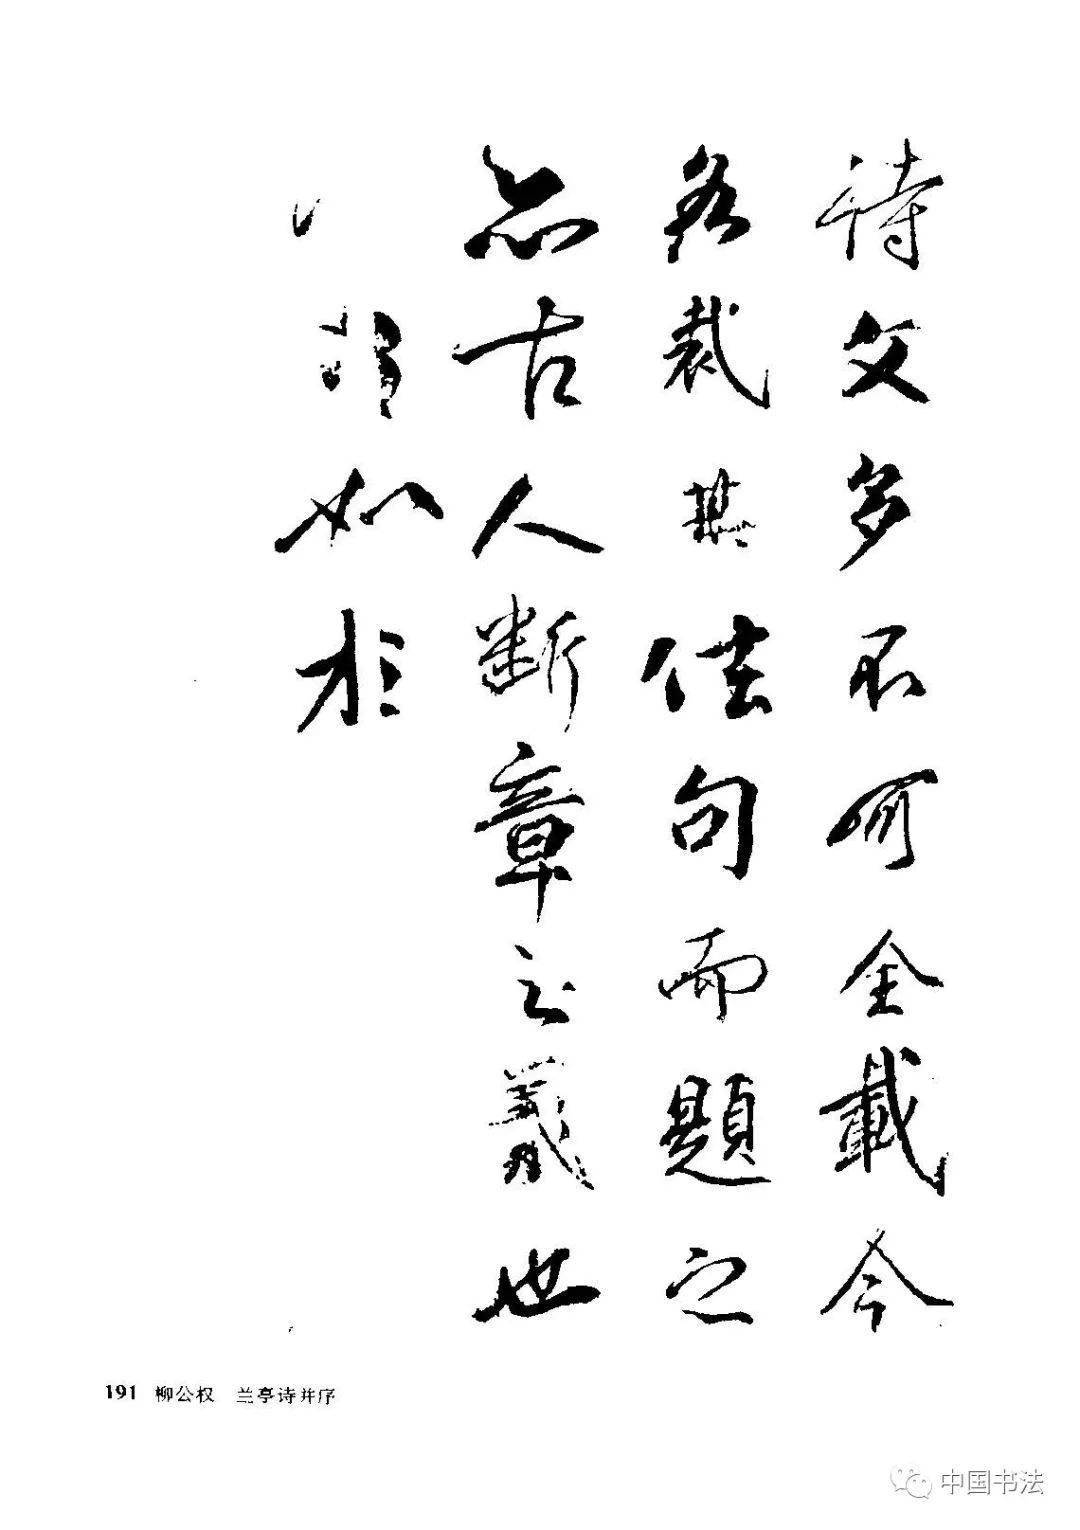 詩文多不可全載今
各裁其佳句而題之
亦古人斷章之義也
如於
191 柳公权 兰亭诗并序
中国书法